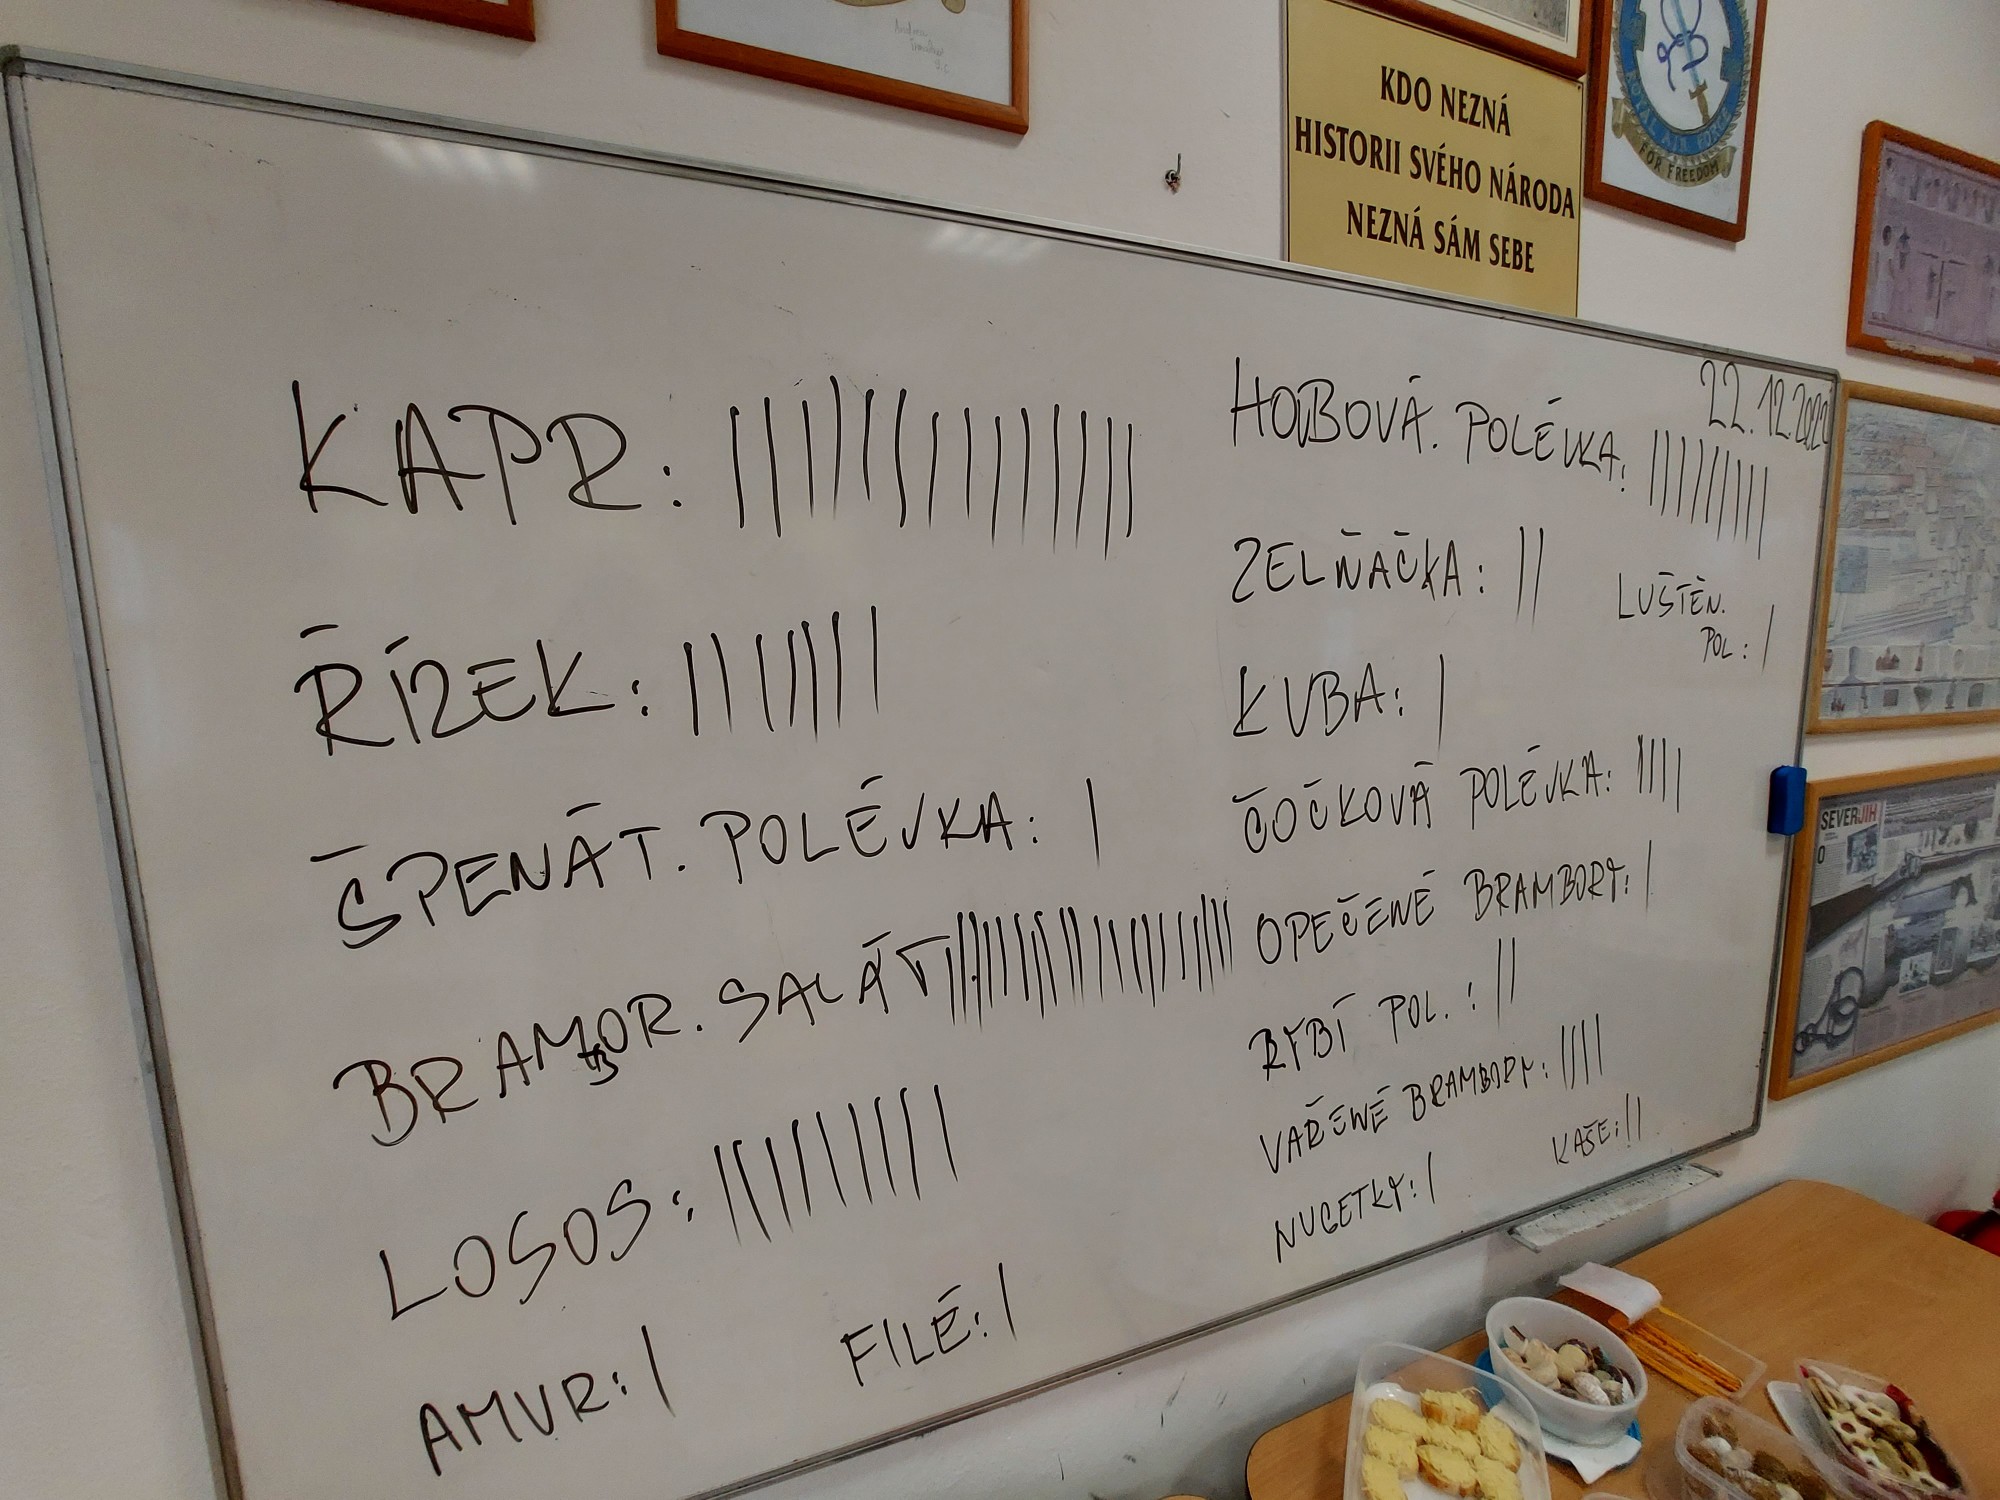 KDO NEZNÁ
HISTORII SVÉHO NÁRODA
NEZNÁ SÁM SEBE
ROYAL AIR FORCE
FOR FREEDOM
22.12.2022
KAPR:
ŘÍZEK:
ŠPENÁT. POLÉVKA:
BRAMBOR. SALÁT
LOSOS:
AMUR:
FILÉ:
HOUBOVÁ. POLÉVKA:
ZELŇAČKA:
LUŠTĚN.
POL:
KUBA:
ČOČKOVÁ POLÉVKA:
OPEČENÉ BRAMBORY:
RYBÍ POL.:
VAŘENÉ BRAMBORY:
KAŠE:
NUGETKY:
SEVERJIH